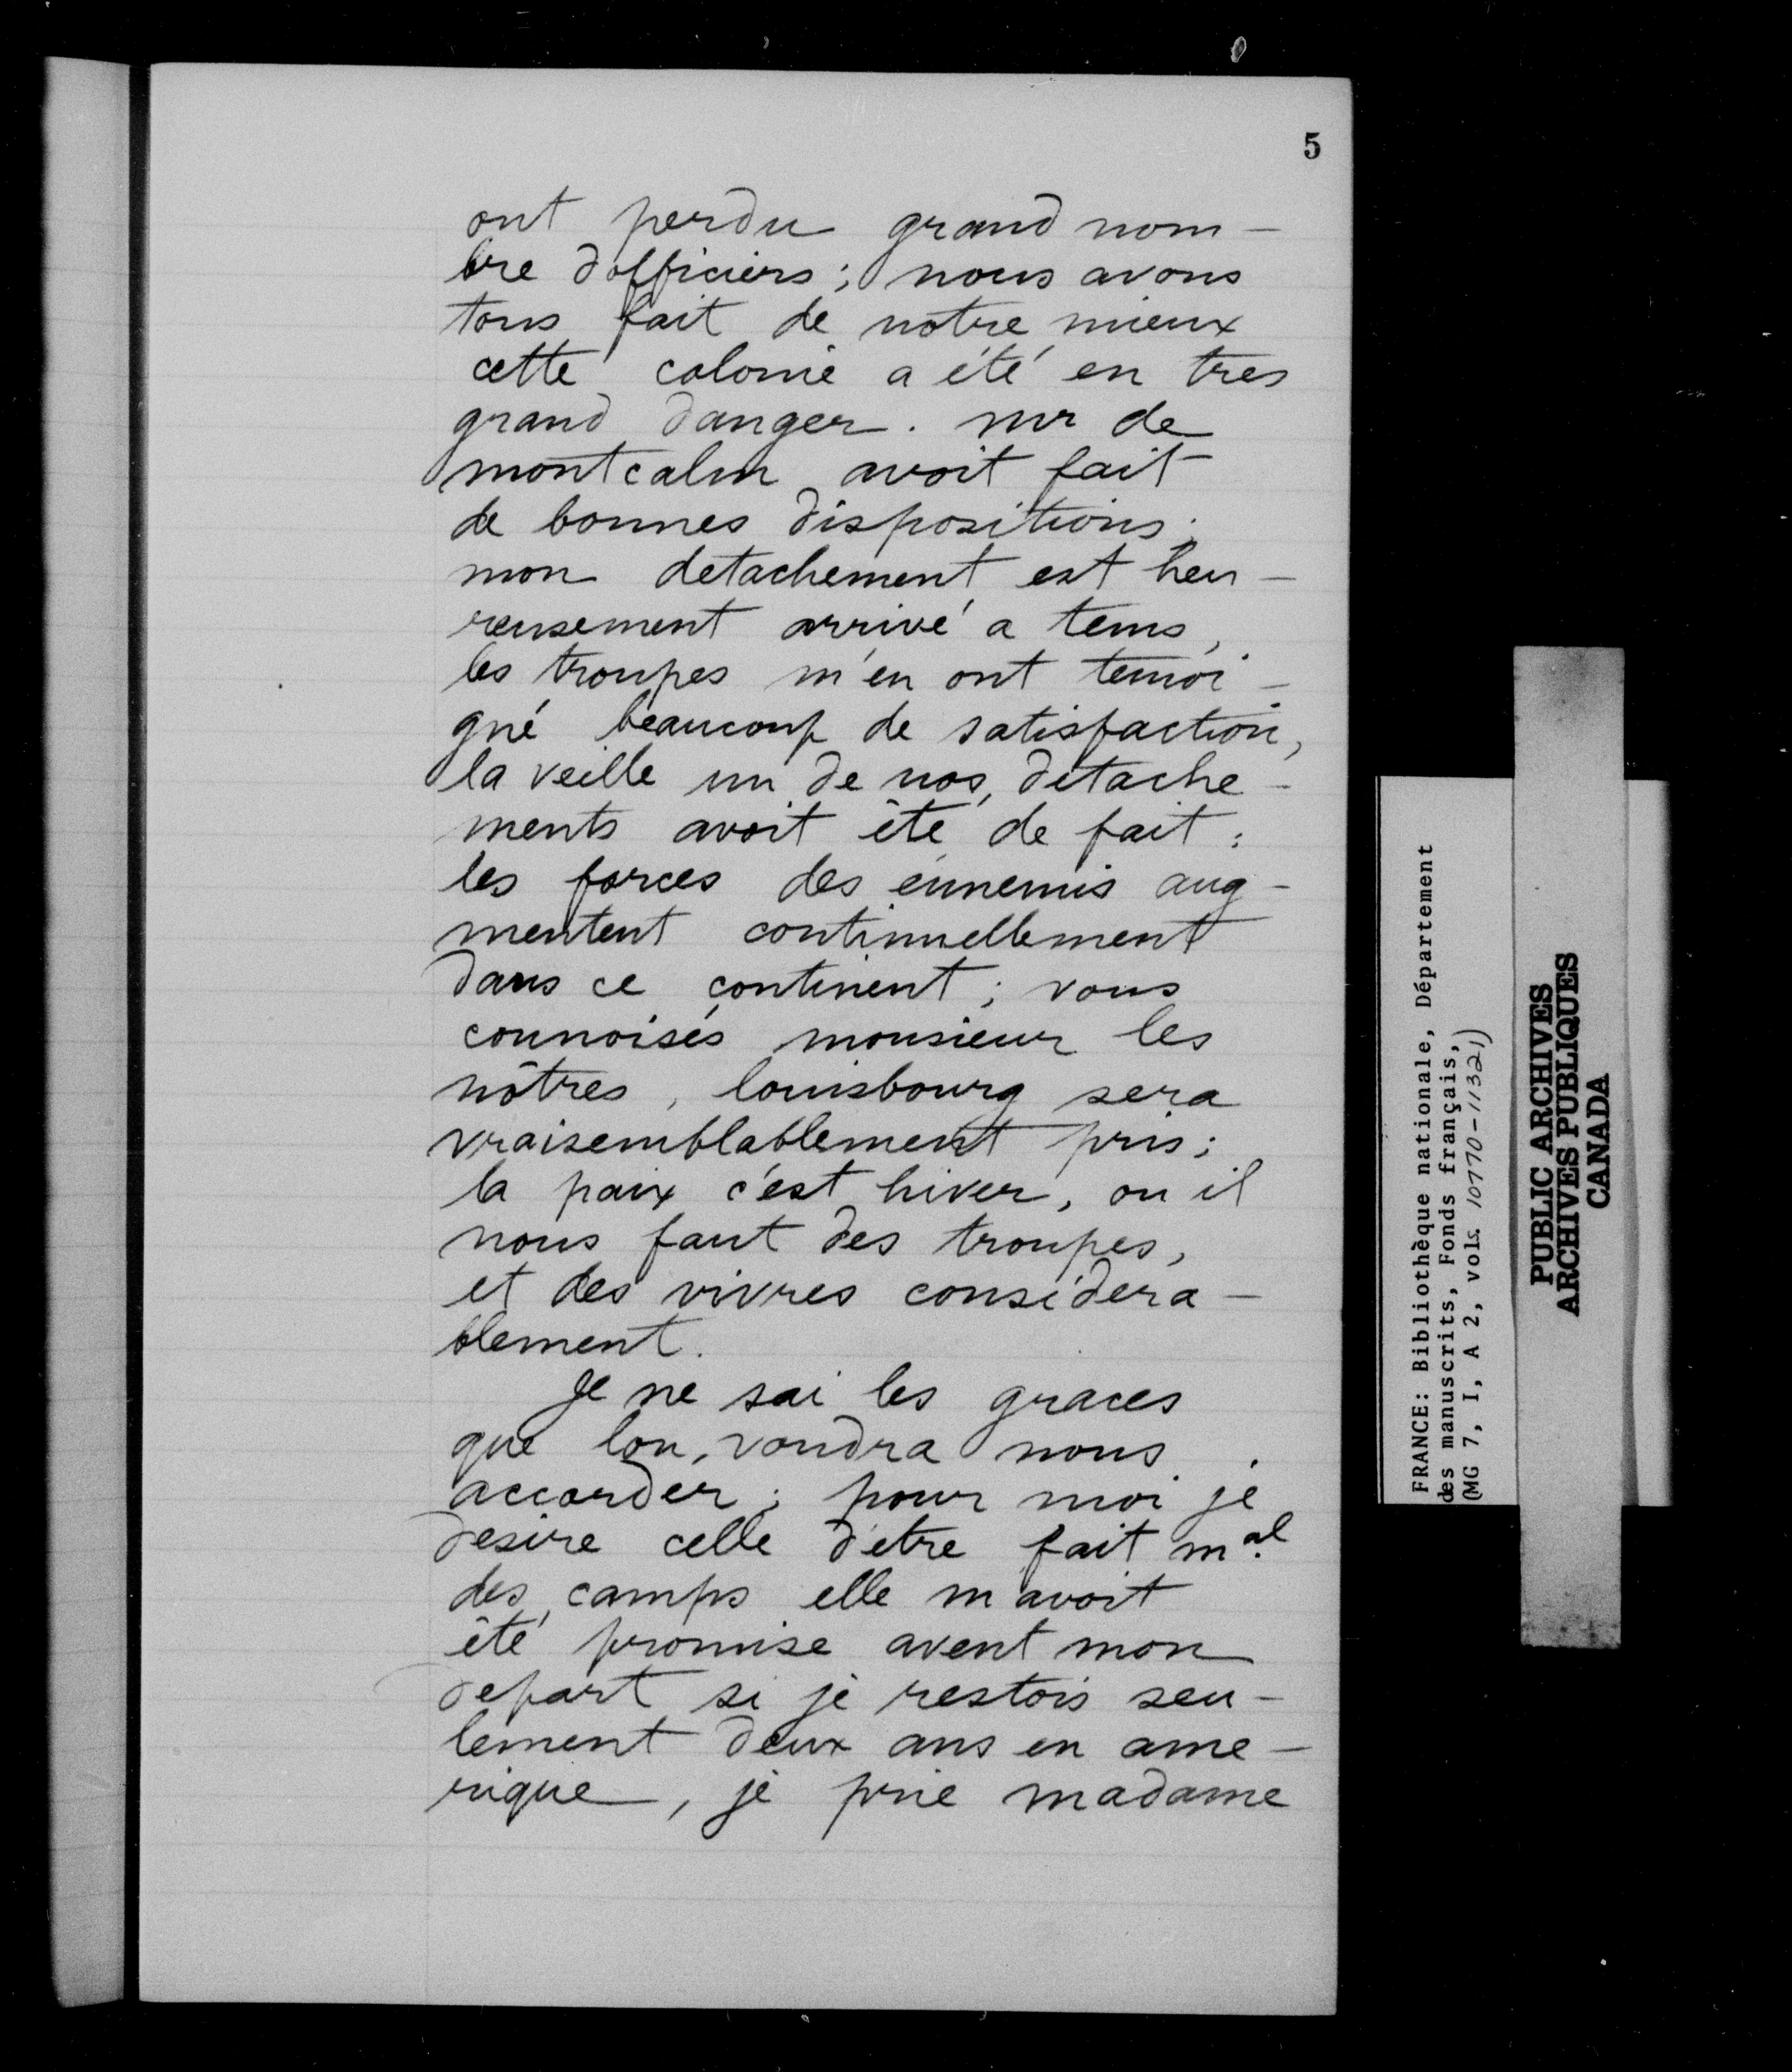 5
ont perdu grand nom-
bre d'officiers; nous avons
tous fait de nôtre mieux
cette colonie a été en tres
grand danger. mr de
montcalm avoit fait
de bonnes dispositions.
mon detachement est heu-
reusement arrivé a tems,
les troupes m'en ont temoi-
gné beaucoup de satisfaction,
la veille un de nos detache-
ments avoit été de fait:
les forces des ennemis aug-
mentent continuellement
dans ce continent; vous
connoisés monsieur les
nôtres, louisbourg sera
vraisemblablement pris;
la paix c'est hiver, ou il
nous faut des troupes,
et des vivres considera-
blement.
Je ne sai les graces
que lon, voudra nous
accorder; pour moi je
desire celle d'etre fait m.al
des camps elle m'avoit
été promise avent mon
depart si je restois seu-
lement deux ans en ame-
rique, je prie madame
FRANCE: Bibliothèque nationale, Département
des manuscrits, Fonds français,
(MG 7, I, A 2, vols. 10770-11321)
PUBLIC ARCHIVES
ARCHIVES PUBLIQUES
CANADA